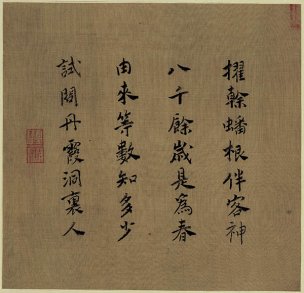 擢榦蟠根伴容神
八千餘歲是為春
由來等數知多少
試問丹霞洞裏人